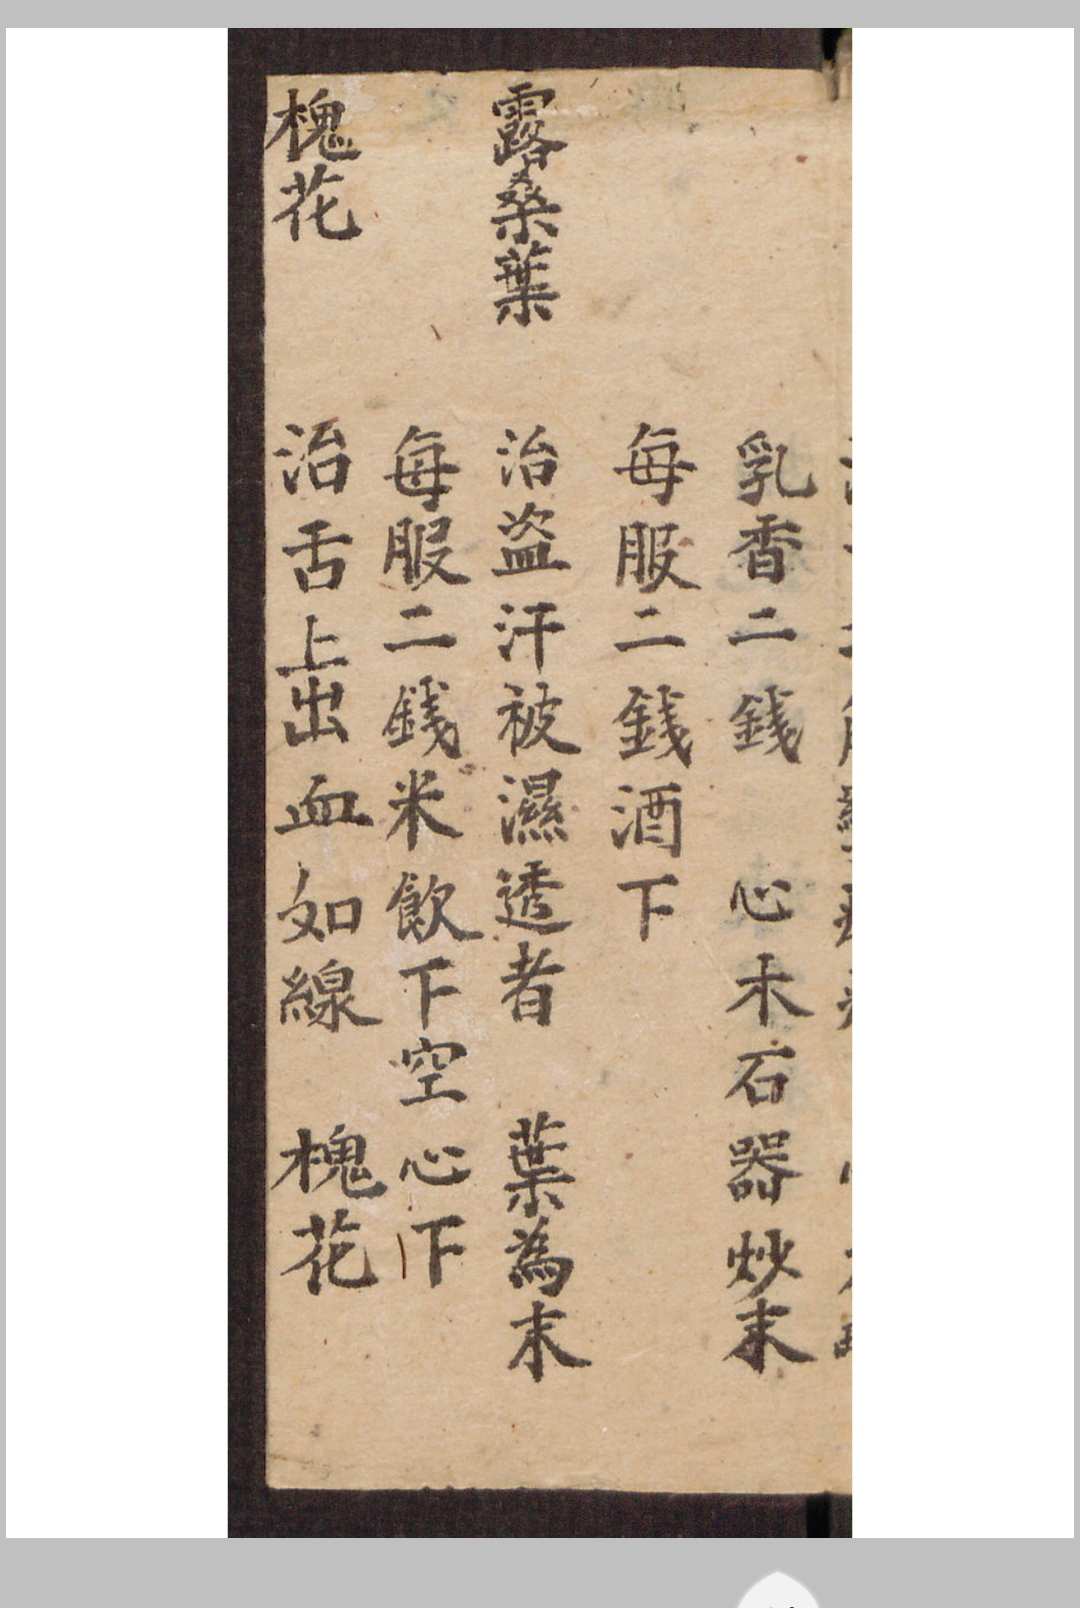 乳香二錢　心木石器炒末
每服二錢酒下
露桑葉　治盜汗被濕透者　葉為末
每服二錢米飲下空心下
槐花　治舌上出血如線　槐花